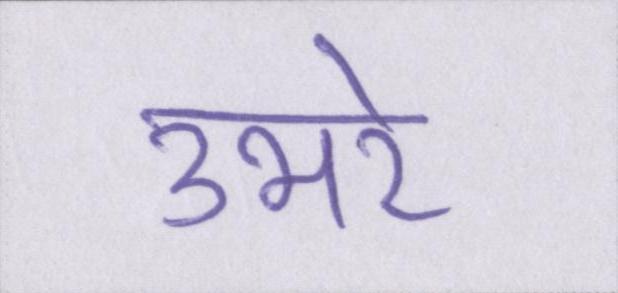 उभरे